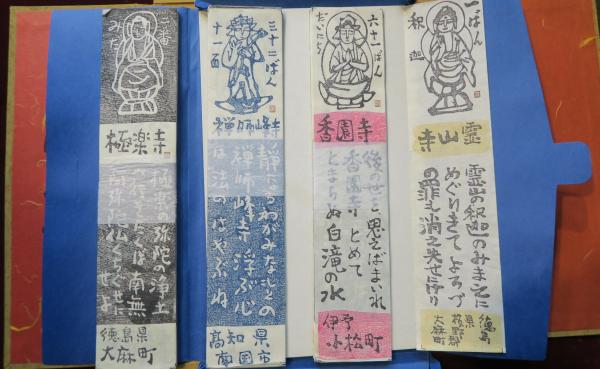 一ばん
釈迦
霊山寺
霊山の釈迦のみまえに
めぐりきてよろづ
の罪も消え失せにけり
徳島
県
板野郡
大麻町
六十一ばん
だいにち
香園寺
後の世を思えばまいれ
香園寺とめて
とまらぬ白滝の水
伊予
小松町
三十二ばん
十一面
禅師峰寺
静かなるわがみなもとの
禅師峰寺浮ぶ心
は法のはやぶね
高知県
南国市
二番
みだ
極楽寺
極楽の弥陀の浄土
南無
弥陀仏
徳島県
大麻町